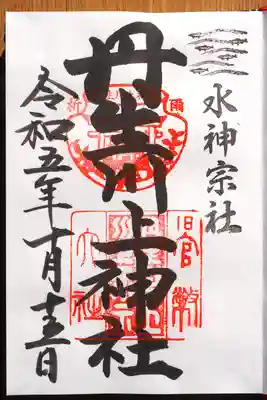 水神宗社
丹生川上神社
令和五年十月十三日
旧官幣
大社